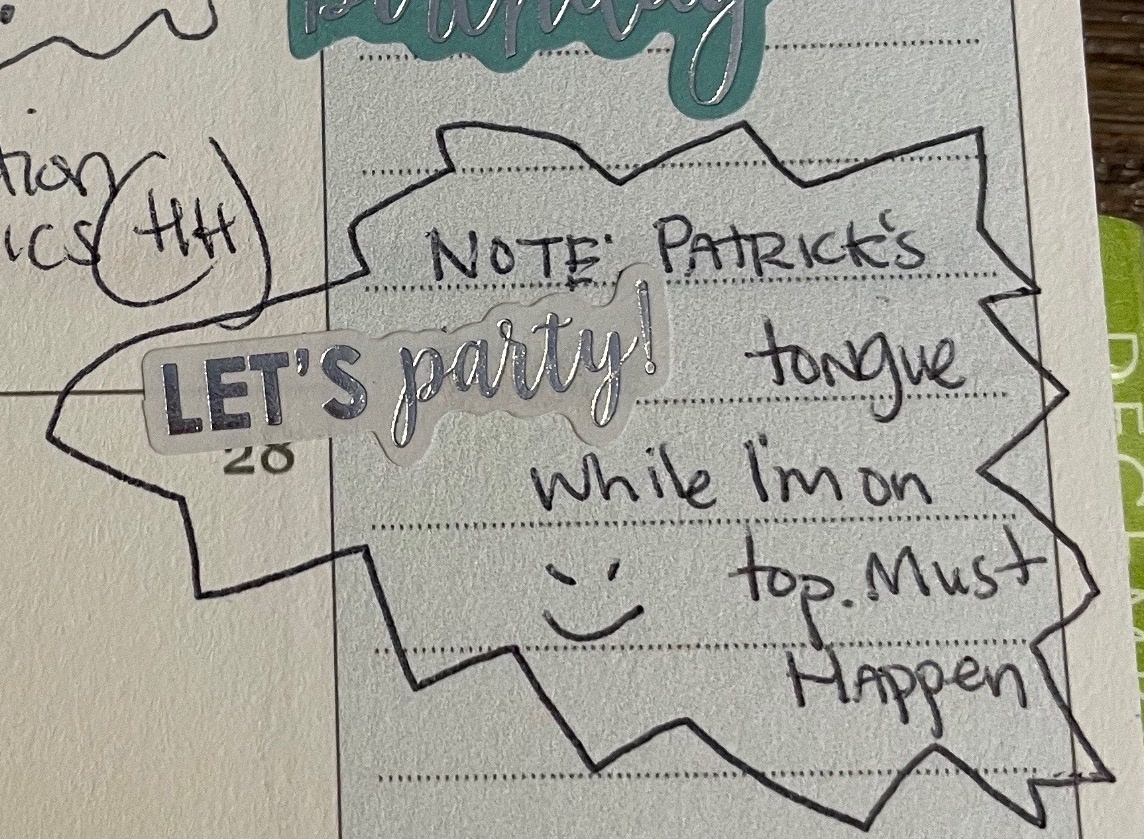 birthday
tion
ics HH
NOTE: PATRICK'S
LET'S party!
tongue
28
while I'm on
top. Must
Happen